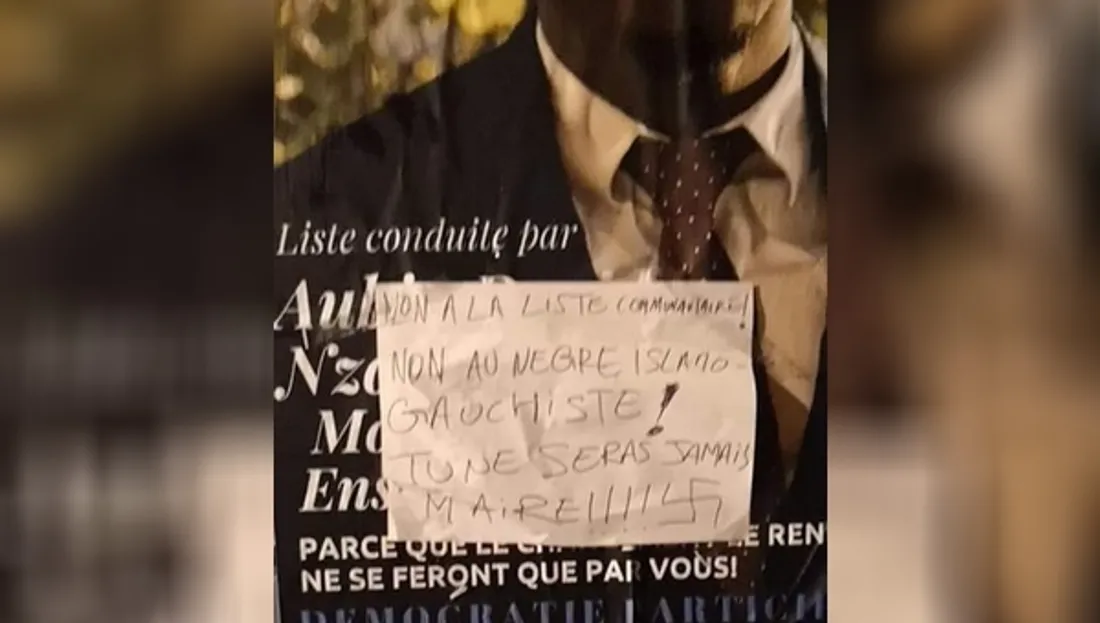 Liste conduite par
NON A LA LISTE COMMUNAUTAIRE!
NON AU NEGRE ISLAMO-
GAUCHISTE!
TU NE SERAS JAMAIS
MAIRE!!!!! 卐
Mo
Ens
PARCE QUE LE REN
NE SE FERONT QUE PAR VOUS!
DEMOCRATIE